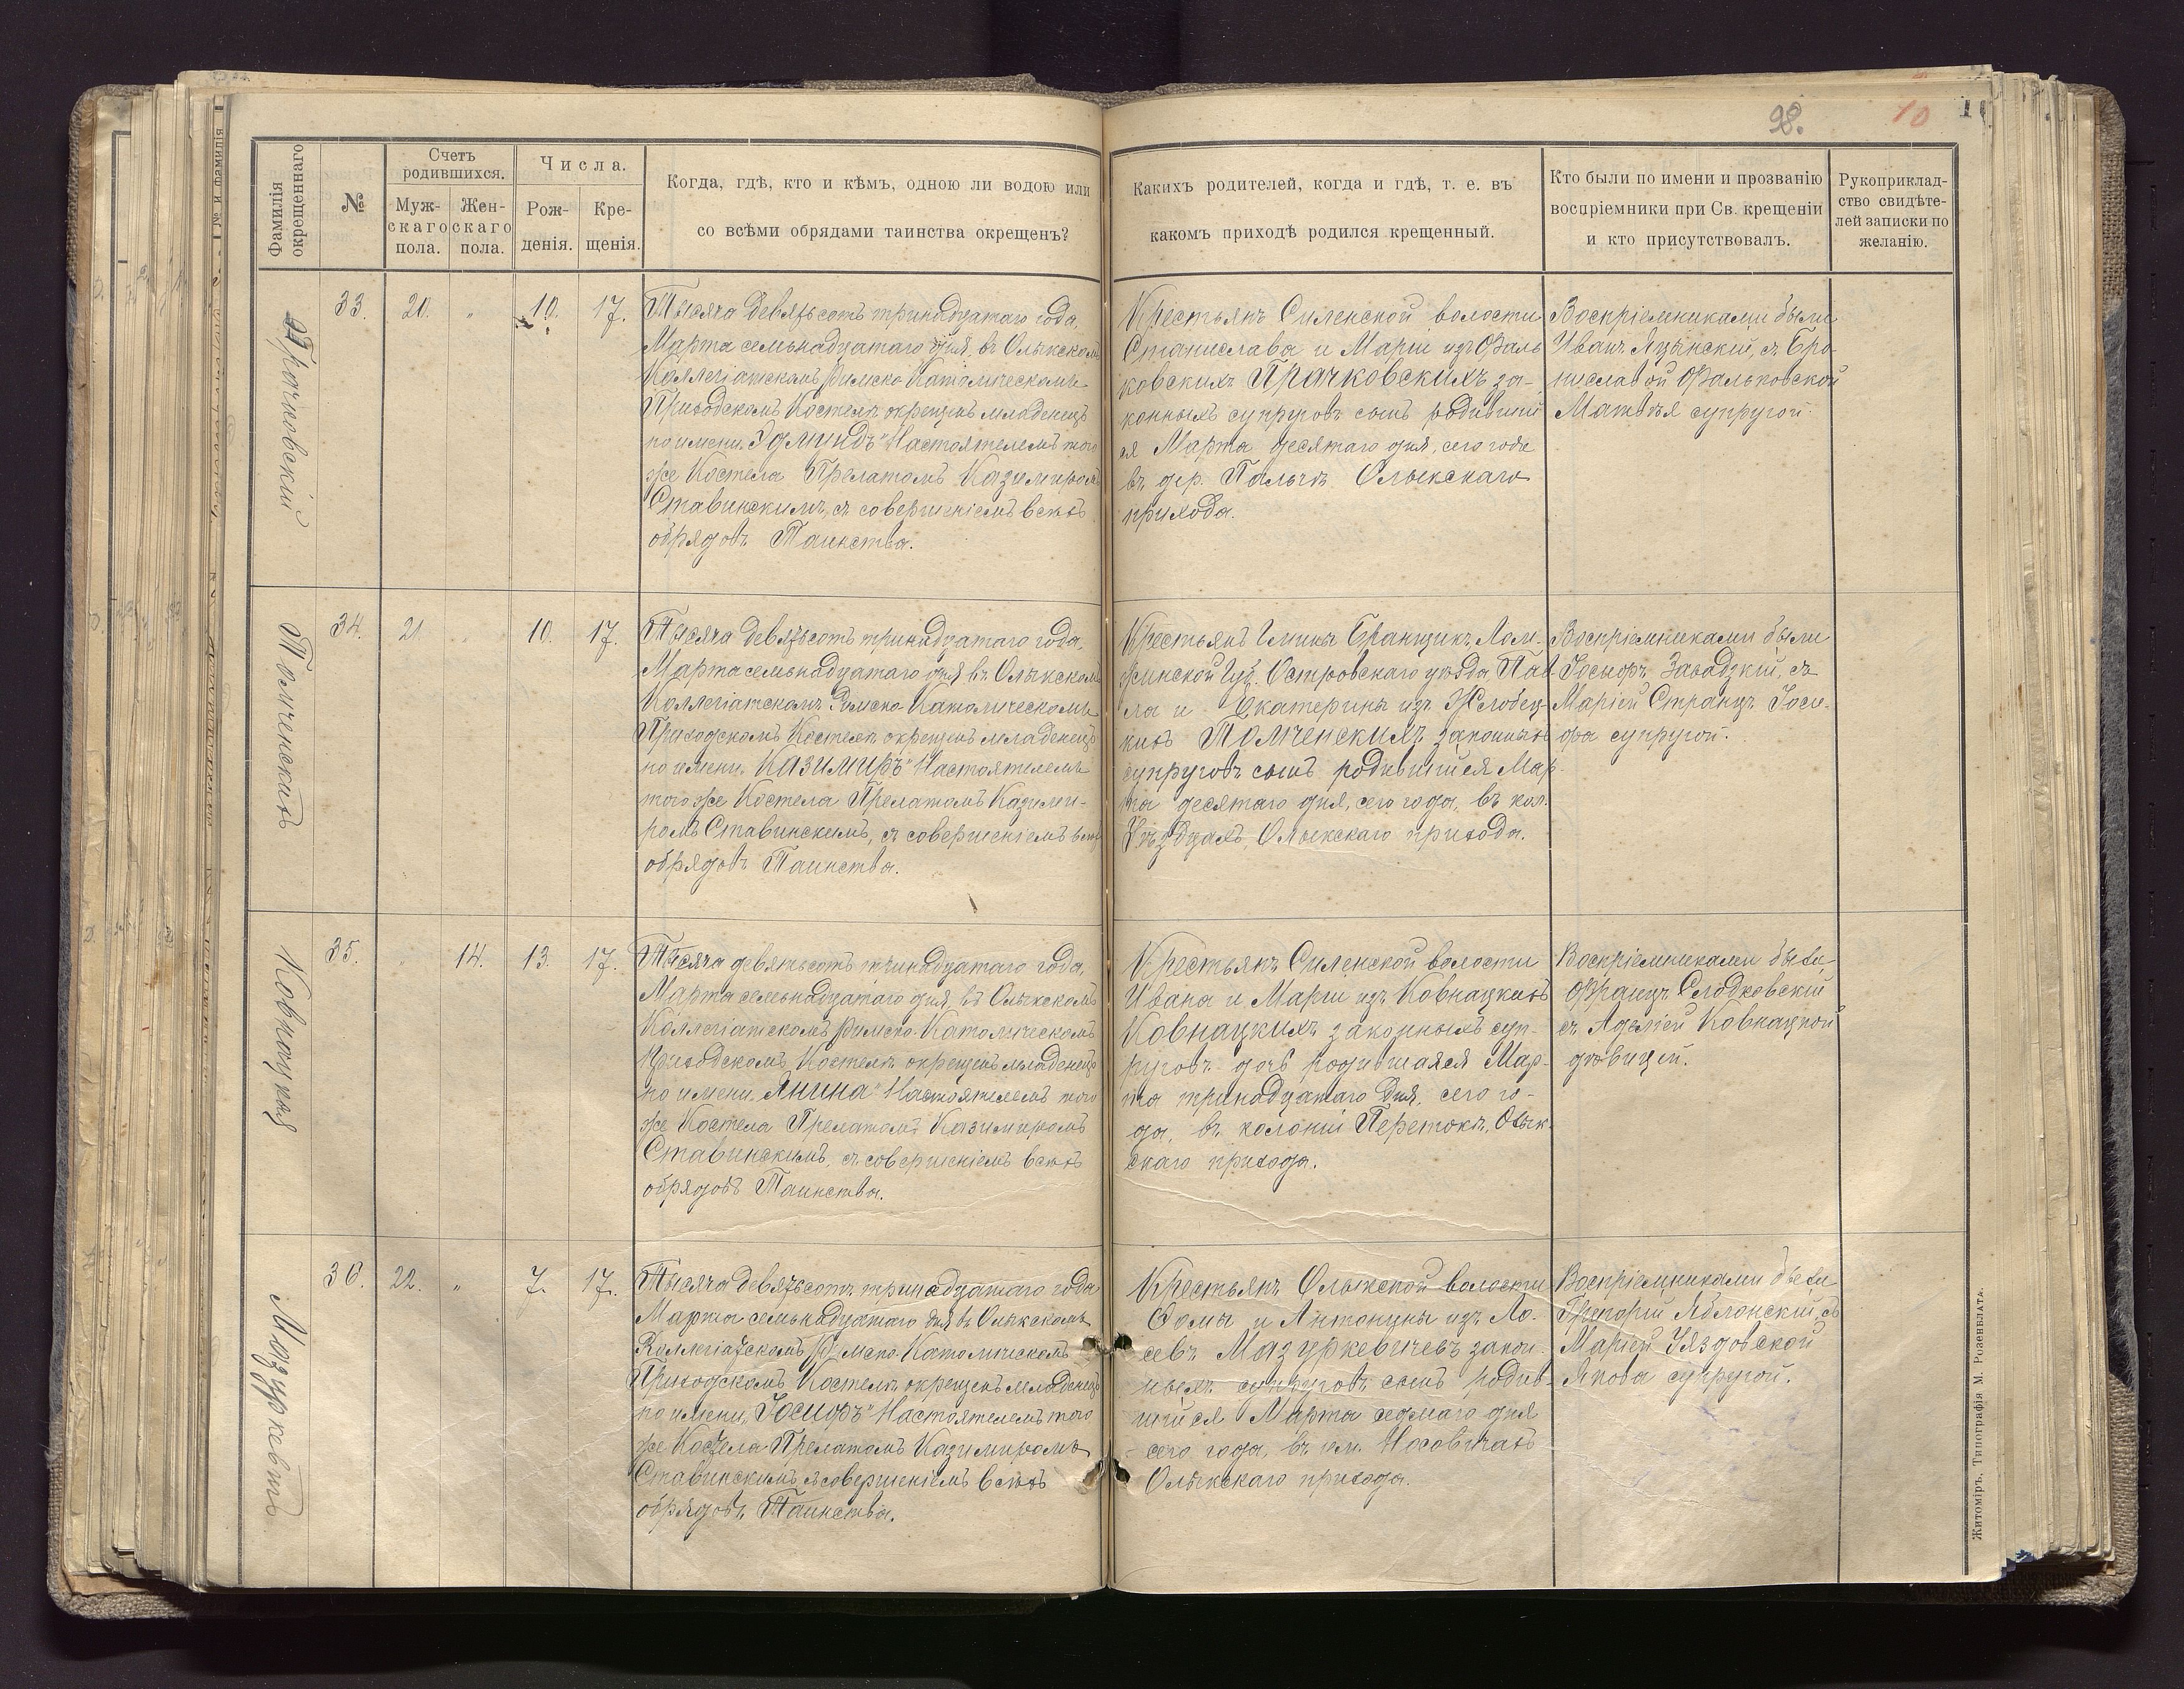 98.
10
Фамилія
окрещеннаго
№
Счетъ
родившихся.
Муж-
скаго
пола.
Жен-
скаго
пола.
Числа.
Рож-
денія.
Кре-
щенія.
Когда, гдѣ, кто и кѣмъ, одною ли водою или
со всѣми обрядами таинства окрещенъ?
Какихъ родителей, когда и гдѣ, т. е. въ
какомъ приходѣ родился крещенный.
Кто были по имени и прозванію
воспріемники при Св. крещеніи
и кто присутствовалъ.
Рукоприклад-
ство свидѣте-
лей записки по
желанію.
Прачковскій
33. 20. " 10. 17.
Тысяча девятьсотъ тринадцатаго года,
Марта семьнадцатаго дня, въ Олыкскомъ
Коллегіатскомъ Римско-Католическомъ
Приходскомъ Костелѣ окрещенъ младенецъ
по имени „Эдмундъ" Настоятелемъ того
же Костела Прелатомъ Казимиромъ
Ставинскимъ, съ совершеніемъ всѣхъ
обрядовъ Таинства.
Крестьянъ Силенской волости
Станислава и Маріи изъ Фаль
ковскихъ Прачковскихъ за-
конныхъ супруговъ сынъ родивший
ся Марта десятаго дня, сего года
въ дер. Пальчѣ Олыкскаго
прихода.
Воспріемниками были
Иванъ Яцынскій, съ Бро-
ниславой Фальковской
Матвѣя супругой.
Помченскій
34. 21. " 10. 17.
Тысяча девятьсотъ тринадцатаго года,
Марта семьнадцатаго дня въ Олыкскомъ
Коллегіатскомъ Римско-Католическомъ
Приходскомъ Костелѣ окрещенъ младенецъ
по имени „Казимиръ" Настоятелемъ
того же Костела Прелатомъ Казими-
ромъ Ставинскимъ, съ совершеніемъ всѣхъ
обрядовъ Таинства.
Крестьянъ Гмины Бранщикъ, Лом-
жинской Губ. Островскаго уѣзда, Пав-
ла и Екатерины изъ Жлобец-
кихъ Помченскихъ законныхъ
супруговъ сынъ родившийся Мар-
та десятаго дня, сего года, въ кол.
Олыкскаго прихода.
Воспріемниками были
Іосифъ Завадзкій, съ
Маріей Странцъ Іоси-
фа супругой.
Ковнацкая
35. " 14. 13. 17.
Тысяча девятьсотъ тринадцатаго года,
Марта семьнадцатаго дня, въ Олыкскомъ
Коллегіатскомъ Римско-Католическомъ
Приходскомъ Костелѣ окрещенъ младенецъ
по имени „Янина" Настоятелемъ того
же Костела Прелатомъ Казимиромъ
Ставинскимъ, съ совершеніемъ всѣхъ
обрядовъ Таинства.
Крестьянъ Силенской волости
Ивана и Маріи изъ Ковнацкихъ
Ковнацкихъ законныхъ суп-
руговъ дочь родившаяся Мар-
та тринадцатаго дня, сего го-
да, въ колоніи Перетокъ, Олык-
скаго прихода.
Воспріемниками были
Францъ Слодковскій
съ Аделіей Ковнацкой
дѣвицей.
Мазуркевичъ
36. 22. " 7. 17.
Тысяча девятьсотъ тринадцатаго года
Марта семьнадцатаго дня въ Олыкскомъ
Коллегіатскомъ Римско-Католическомъ
Приходскомъ Костелѣ окрещенъ младенецъ
по имени „Іосифъ" Настоятелемъ того
же Костела Прелатомъ Казимиромъ
Ставинскимъ съ совершеніемъ всѣхъ
обрядовъ Таинства.
Крестьянъ Олыкской волости
Ѳомы и Антонины изъ Ло-
севъ Мазуркевичевъ закон-
ныхъ супруговъ сынъ родив-
шийся Марта седмаго дня
сего года, въ им. Носовичахъ
Олыкскаго прихода.
Воспріемниками были
Григорій Яблонскій, съ
Маріей Уяздовской
Якова супругой.
Житоміръ, Типографія М. Розенблата.